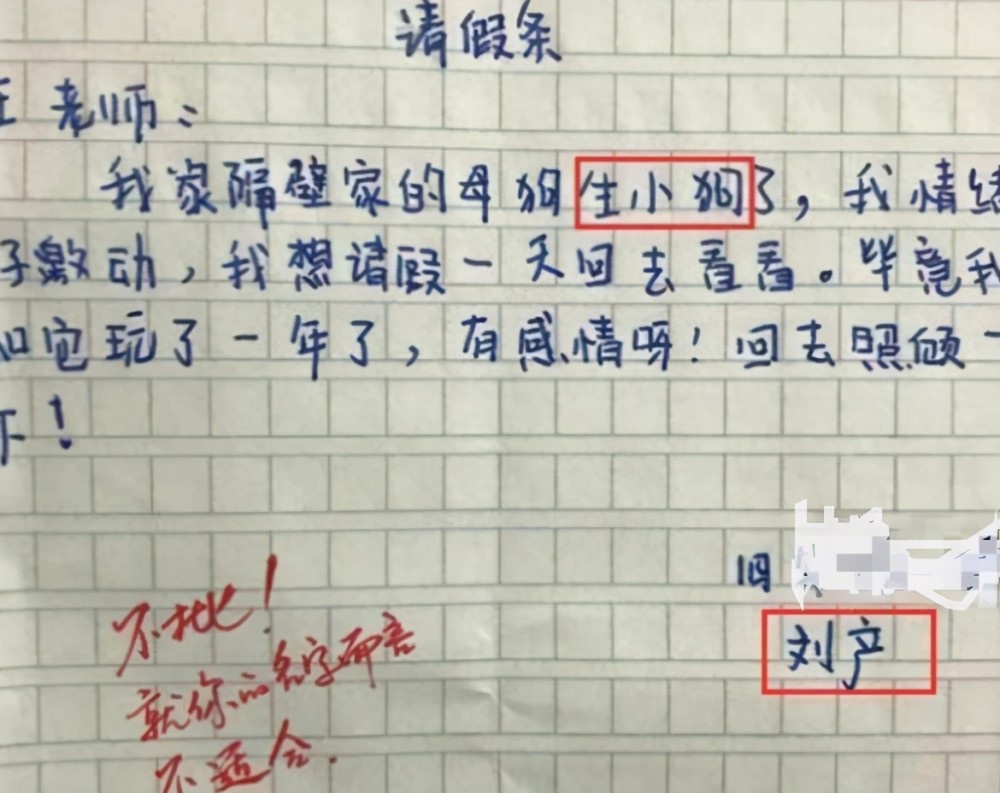 请假条
王老师：
我家隔壁家的母狗生小狗了，我情绪
子激动，我想请假一天回去看看。毕竟我
和它玩了一年了，有感情呀！回去照顾一
下！
刘产
不批！
就你的名字而言
不适合.